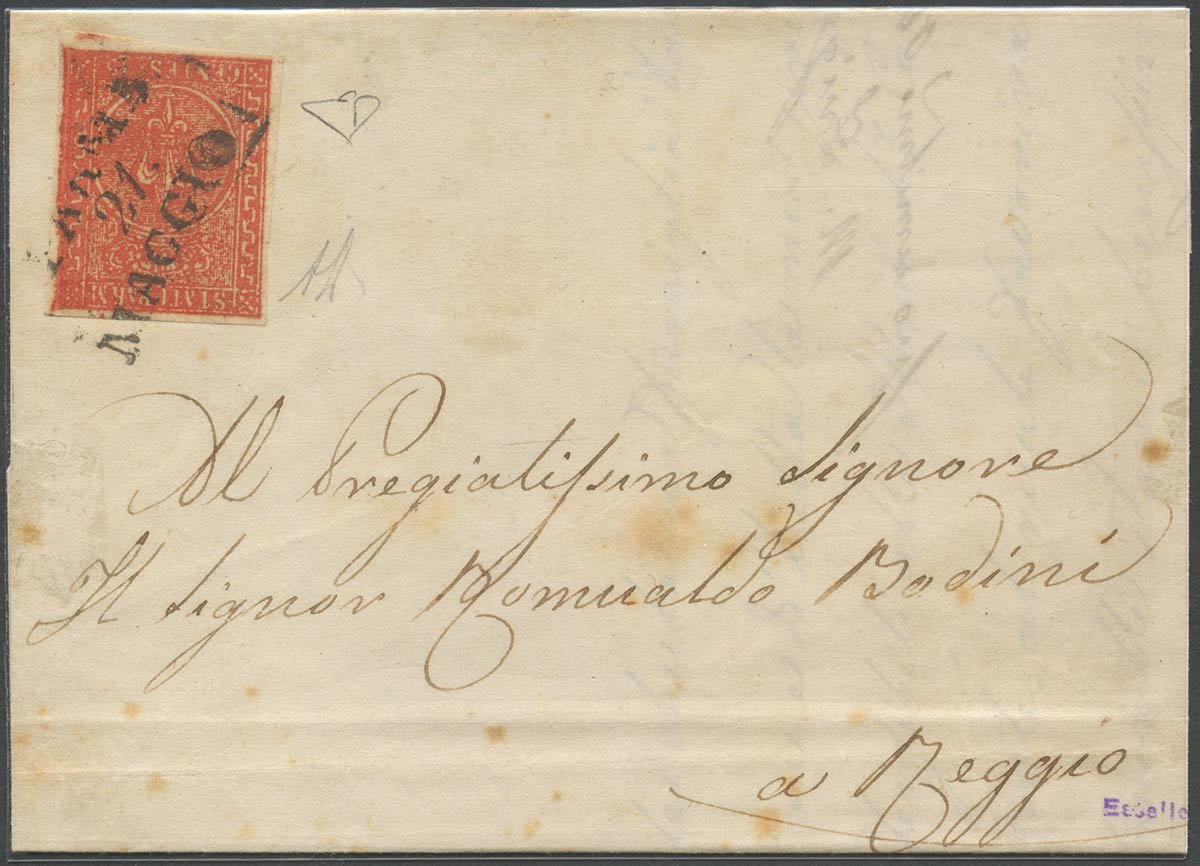 CENTES
PARMA
21
MAGGIO
STATI PARM
Al Pregiatissimo Signore
Il Signor Romualdo Bodini
a Reggio